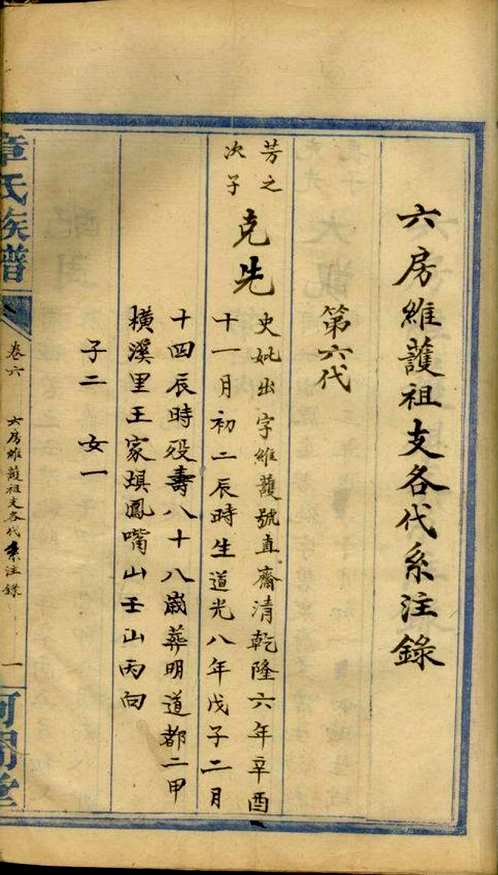 六房維䕶祖支各代系注錄
第六代
芳之
次子
克先
史妣出字維䕶號直齋清乾隆六年辛酉
十一月初二辰時生道光八年戊子二月
十四辰時殁壽八十八嵗葬明道都二甲
橫溪里王家塤鳳嘴山壬山丙向
子二 女一
章氏族譜
卷六
六房維䕶祖支各代系注錄
一
河間堂